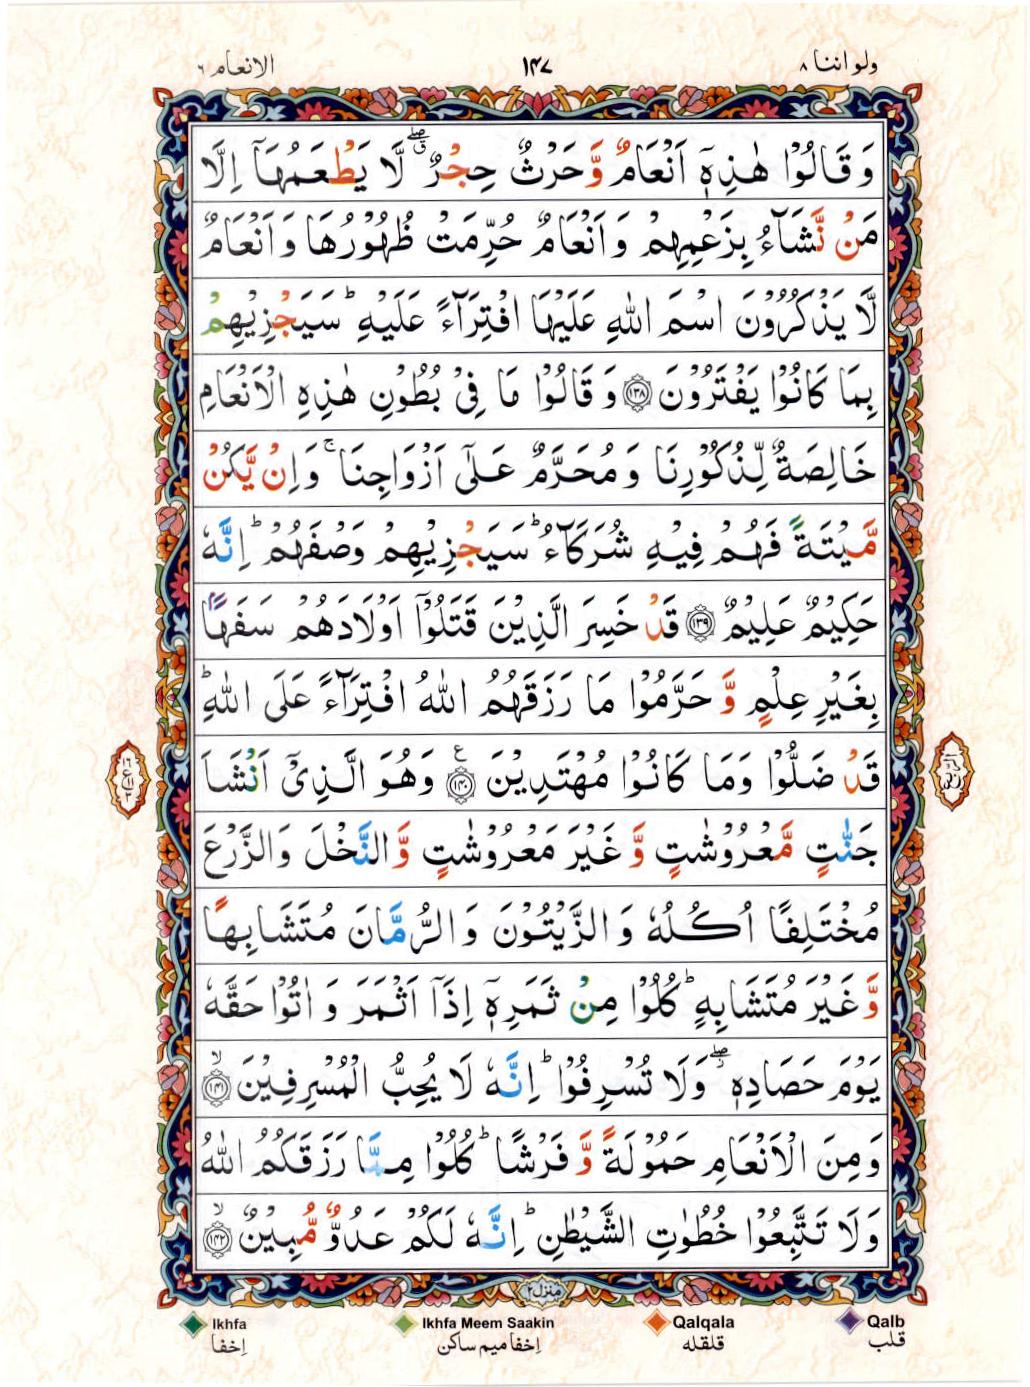 ولواننا ۸
۱۴۷
الانعام ۶
وَقَالُوْا هٰذِهٖٓ اَنْعَامٌ وَّحَرْثٌ حِجْرٌ ۖۗ لَّا يَطْعَمُهَآ اِلَّا
مَنْ نَّشَآءُ بِزَعْمِهِمْ وَاَنْعَامٌ حُرِّمَتْ ظُهُوْرُهَا وَاَنْعَامٌ
لَّا يَذْكُرُوْنَ اسْمَ اللّٰهِ عَلَيْهَا افْتِرَآءً عَلَيْهِ ؕ سَيَجْزِيْهِمْ
بِمَا كَانُوْا يَفْتَرُوْنَ ﴿۱۳۸﴾ وَقَالُوْا مَا فِىْ بُطُوْنِ هٰذِهِ الْاَنْعَامِ
خَالِصَةٌ لِّذُكُوْرِنَا وَمُحَرَّمٌ عَلٰٓى اَزْوَاجِنَا ۚ وَاِنْ يَّكُنْ
مَّيْتَةً فَهُمْ فِيْهِ شُرَكَآءُ ؕ سَيَجْزِيْهِمْ وَصْفَهُمْ ؕ اِنَّهٗ
حَكِيْمٌ عَلِيْمٌ ﴿۱۳۹﴾ قَدْ خَسِرَ الَّذِيْنَ قَتَلُوْٓا اَوْلَادَهُمْ سَفَهًاۢ
بِغَيْرِ عِلْمٍ وَّحَرَّمُوْا مَا رَزَقَهُمُ اللّٰهُ افْتِرَآءً عَلَى اللّٰهِ ؕ
قَدْ ضَلُّوْا وَمَا كَانُوْا مُهْتَدِيْنَ ﴿۱۴۰﴾ ع وَهُوَ الَّذِىْٓ اَنْشَاَ
جَنّٰتٍ مَّعْرُوْشٰتٍ وَّغَيْرَ مَعْرُوْشٰتٍ وَّالنَّخْلَ وَالزَّرْعَ
مُخْتَلِفًا اُكُلُهٗ وَالزَّيْتُوْنَ وَالرُّمَّانَ مُتَشَابِهًا
وَّغَيْرَ مُتَشَابِهٍ ؕ كُلُوْا مِنْ ثَمَرِهٖٓ اِذَآ اَثْمَرَ وَاٰتُوْا حَقَّهٗ
يَوْمَ حَصَادِهٖ ۖ وَلَا تُسْرِفُوْا ؕ اِنَّهٗ لَا يُحِبُّ الْمُسْرِفِيْنَ ﴿۱۴۱﴾ ۙ
وَمِنَ الْاَنْعَامِ حَمُوْلَةً وَّفَرْشًا ؕ كُلُوْا مِمَّا رَزَقَكُمُ اللّٰهُ
وَلَا تَتَّبِعُوْا خُطُوٰتِ الشَّيْطٰنِ ؕ اِنَّهٗ لَكُمْ عَدُوٌّ مُّبِيْنٌ ﴿۱۴۲﴾ ۙ
منزل ۲
Ikhfa
Ikhfa Meem Saakin
Qalqala
Qalb
اِخفا
اِخفا میم ساکن
قلقله
قلب